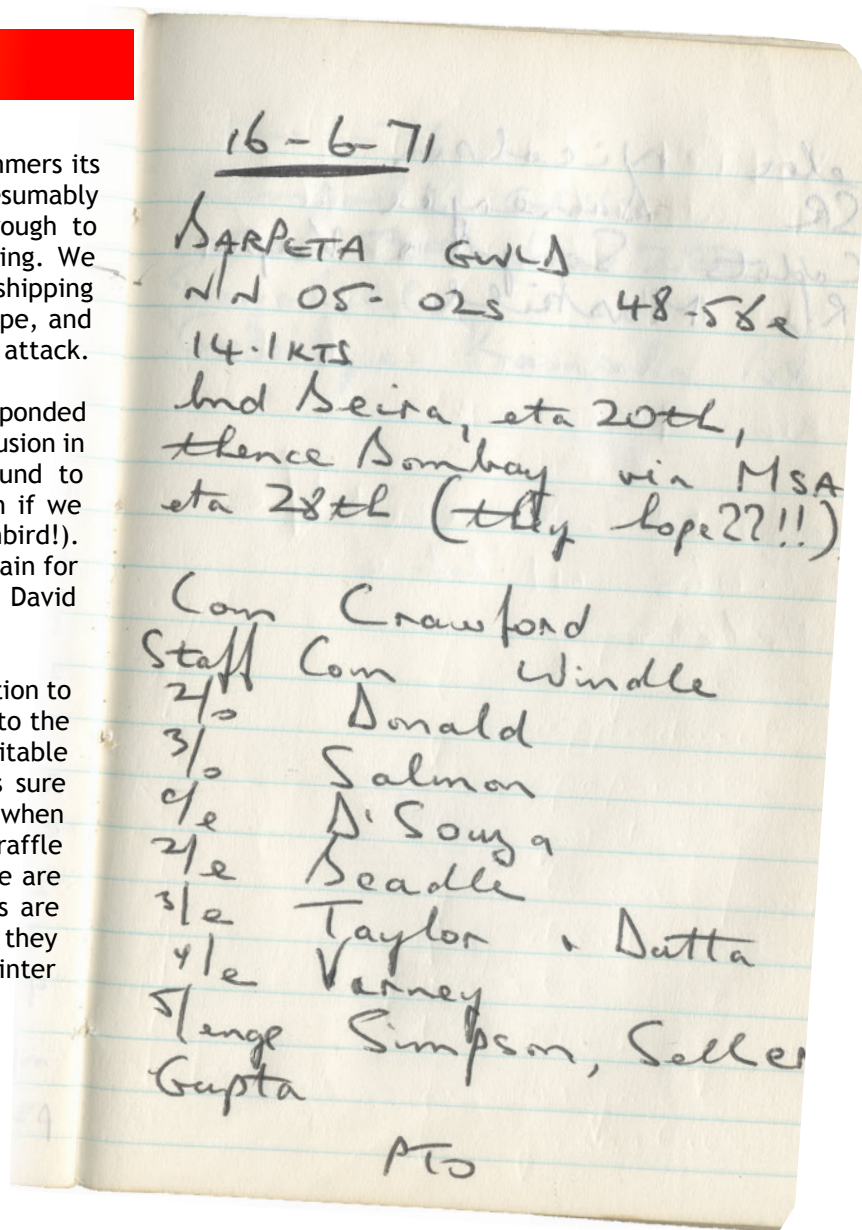 mmers its
esumably
ough to
ing. We
shipping
pe, and
attack.
ponded
usion in
und to
n if we
bird!).
ain for
David
tion to
to the
itable
s sure
when
raffle
e are
s are
they
inter
16-6-71
BARPETA GWLB
N/N 05-02s 48-56e
14.1 KTS
bnd Beira, eta 20th,
thence Bombay via MSA
eta 28th (they hope??!!)
Com Crawford
Staff Com Windle
2/o Donald
3/o Salmon
c/e D'Souza
2/e Beadle
3/e Taylor + Datta
4/e Varney
5/engs Simpson, Seller
Gupta
PTO